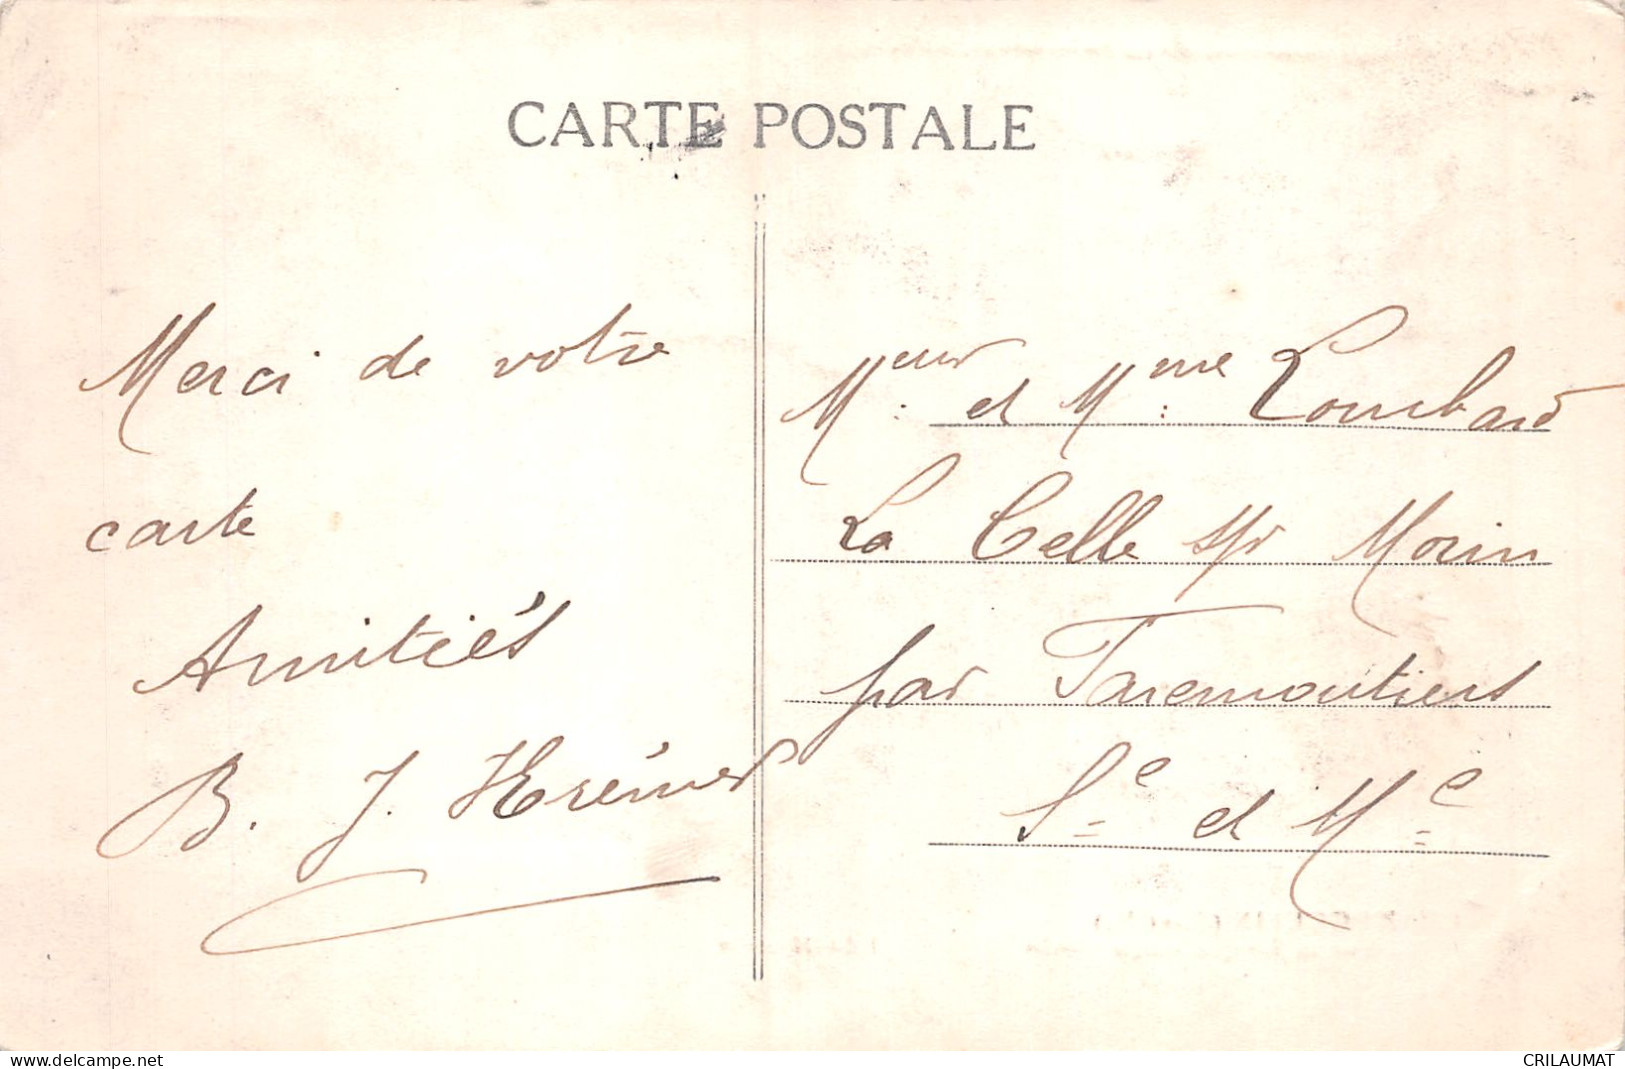 CARTE POSTALE
Merci de votre
carte
Amitiés
B. J.
Meur et Mme Lombard
La Celle s/r Morin
par Faremoutiers
Se et Me
delcampe.net
CRILAUMAT